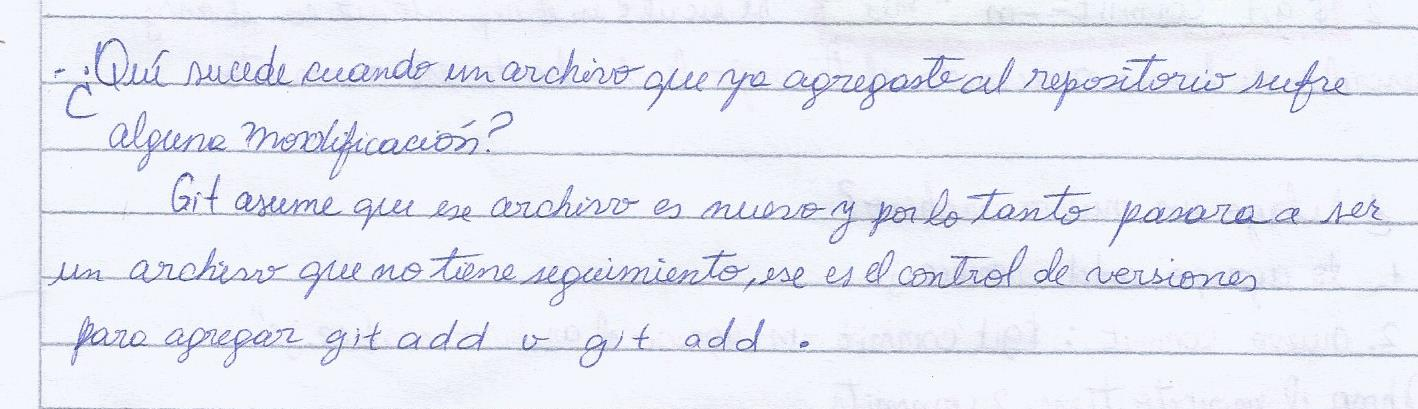 - ¿Qué sucede cuando un archivo que ya agregaste al repositorio sufre
alguna modificación?
Git asume que ese archivo es nuevo y por lo tanto pasara a ser
un archivo que no tiene seguimiento, ese es el control de versiones
para agregar git add o git add .